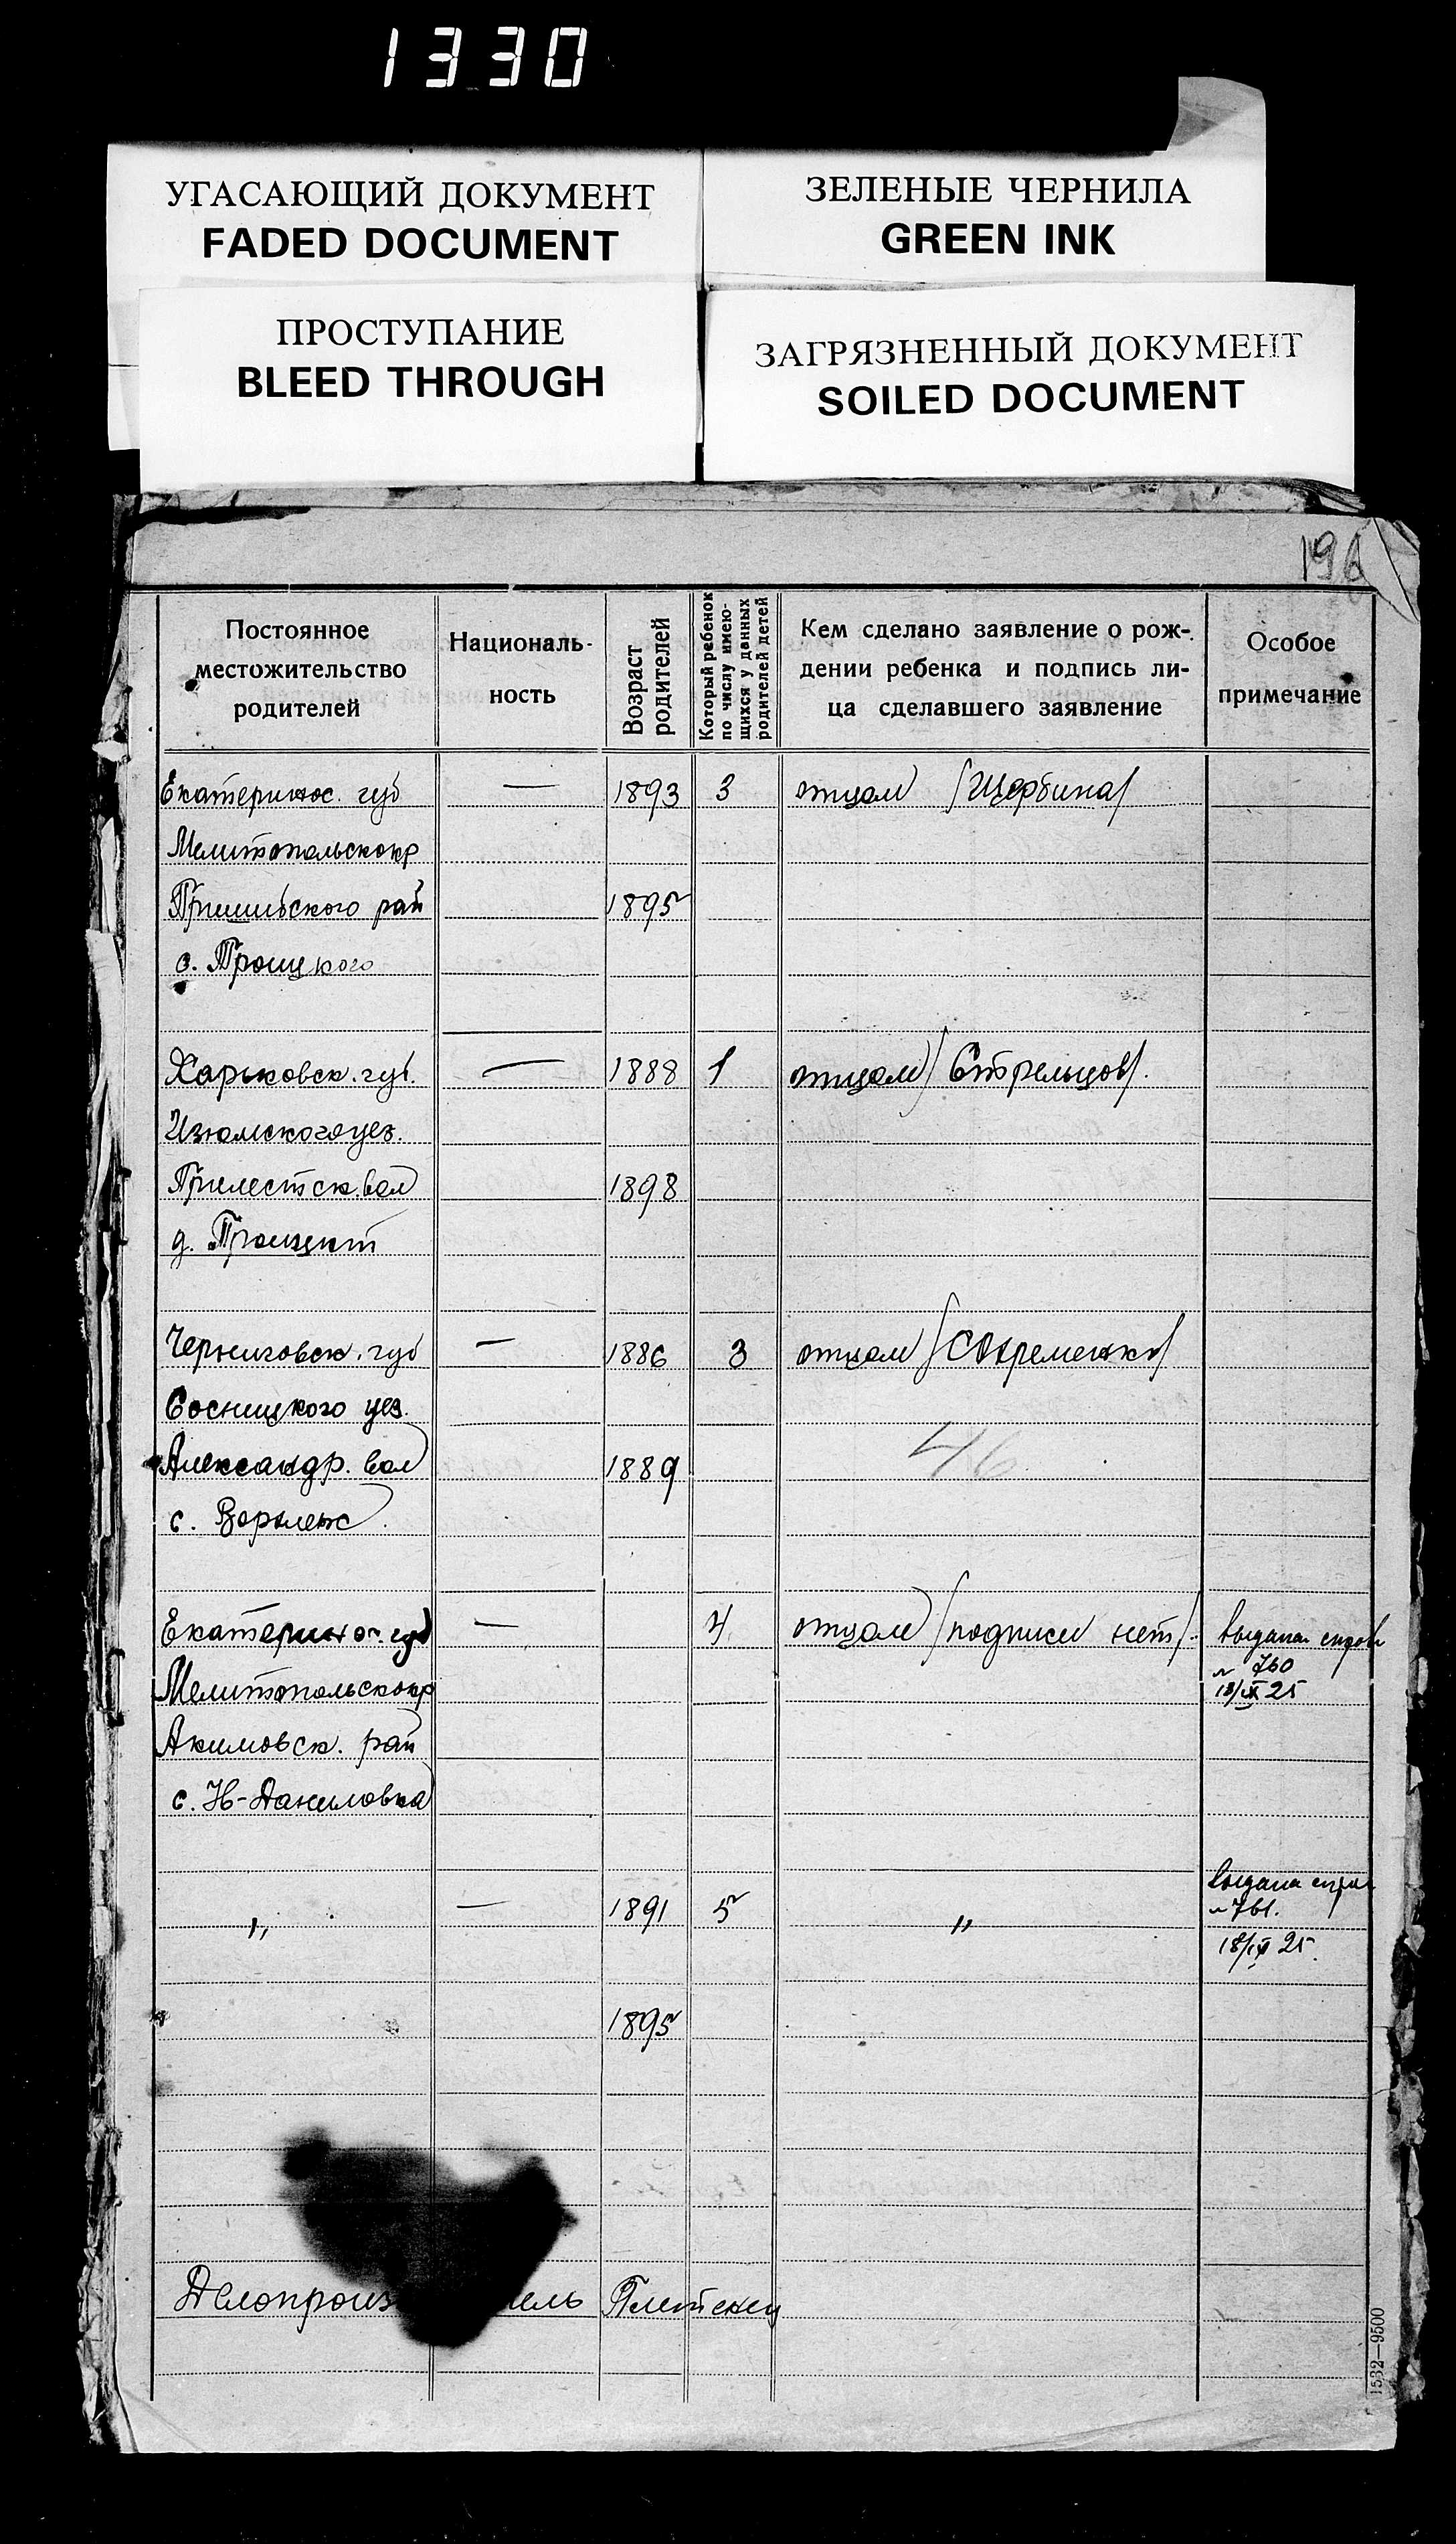 1330
УГАСАЮЩИЙ ДОКУМЕНТ
FADED DOCUMENT
ЗЕЛЕНЫЕ ЧЕРНИЛА
GREEN INK
ПРОСТУПАНИЕ
BLEED THROUGH
ЗАГРЯЗНЕННЫЙ ДОКУМЕНТ
SOILED DOCUMENT
196
Постоянное
местожительство
родителей
Националь-
ность
Возраст
родителей
Который ребенок
по числу имею-
щихся у данных
родителей детей
Кем сделано заявление о рож-
дении ребенка и подпись ли-
ца сделавшего заявление
Особое
примечание
Екатеринос. губ — 1893 3 отцом /Щербина/
Мелитопольск окр
рай 1895
с. Троцкого
Харьковск. губ. — 1888 1 отцом /Стрельцов/.
Изюмского уез.
вол 1898
д.
Черниговск. губ — 1886 3 отцом
Сосницкого уез.
Александр. вол 1889
46
с.
Екатерино. губ — 4 отцом /подписи нет/. Выдана справ
Мелитопольск окр № 760
18/IX 25
Акимовск. рай
с. Н-Даниловка
Выдана спра
„ — 1891 5 „ № 761.
18/IX 25.
1895
Делопроиз тель
1532—9500